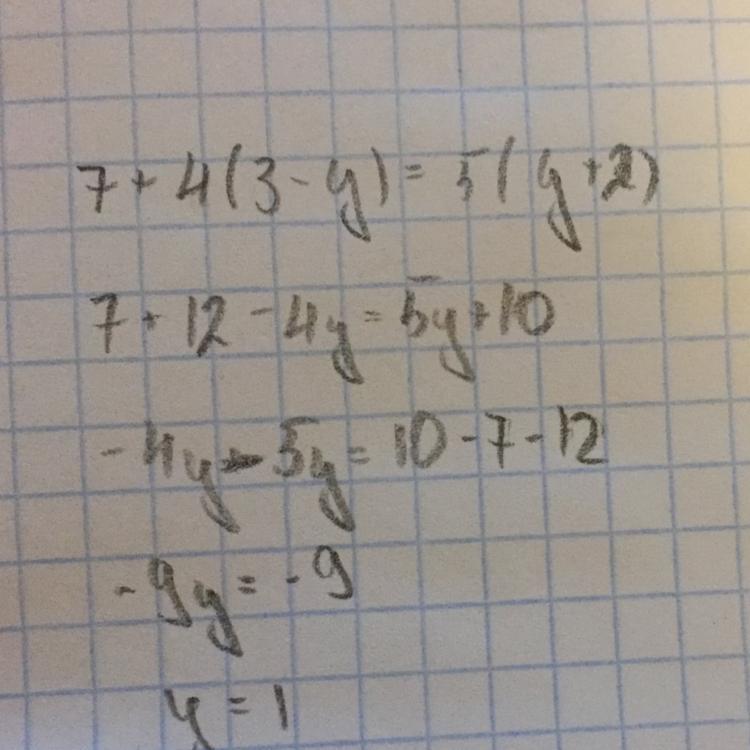 7 + 4(3 - y) = 5(y + 2)
7 + 12 - 4y = 5y + 10
- 4y - 5y = 10 - 7 - 12
- 9y = - 9
y = 1